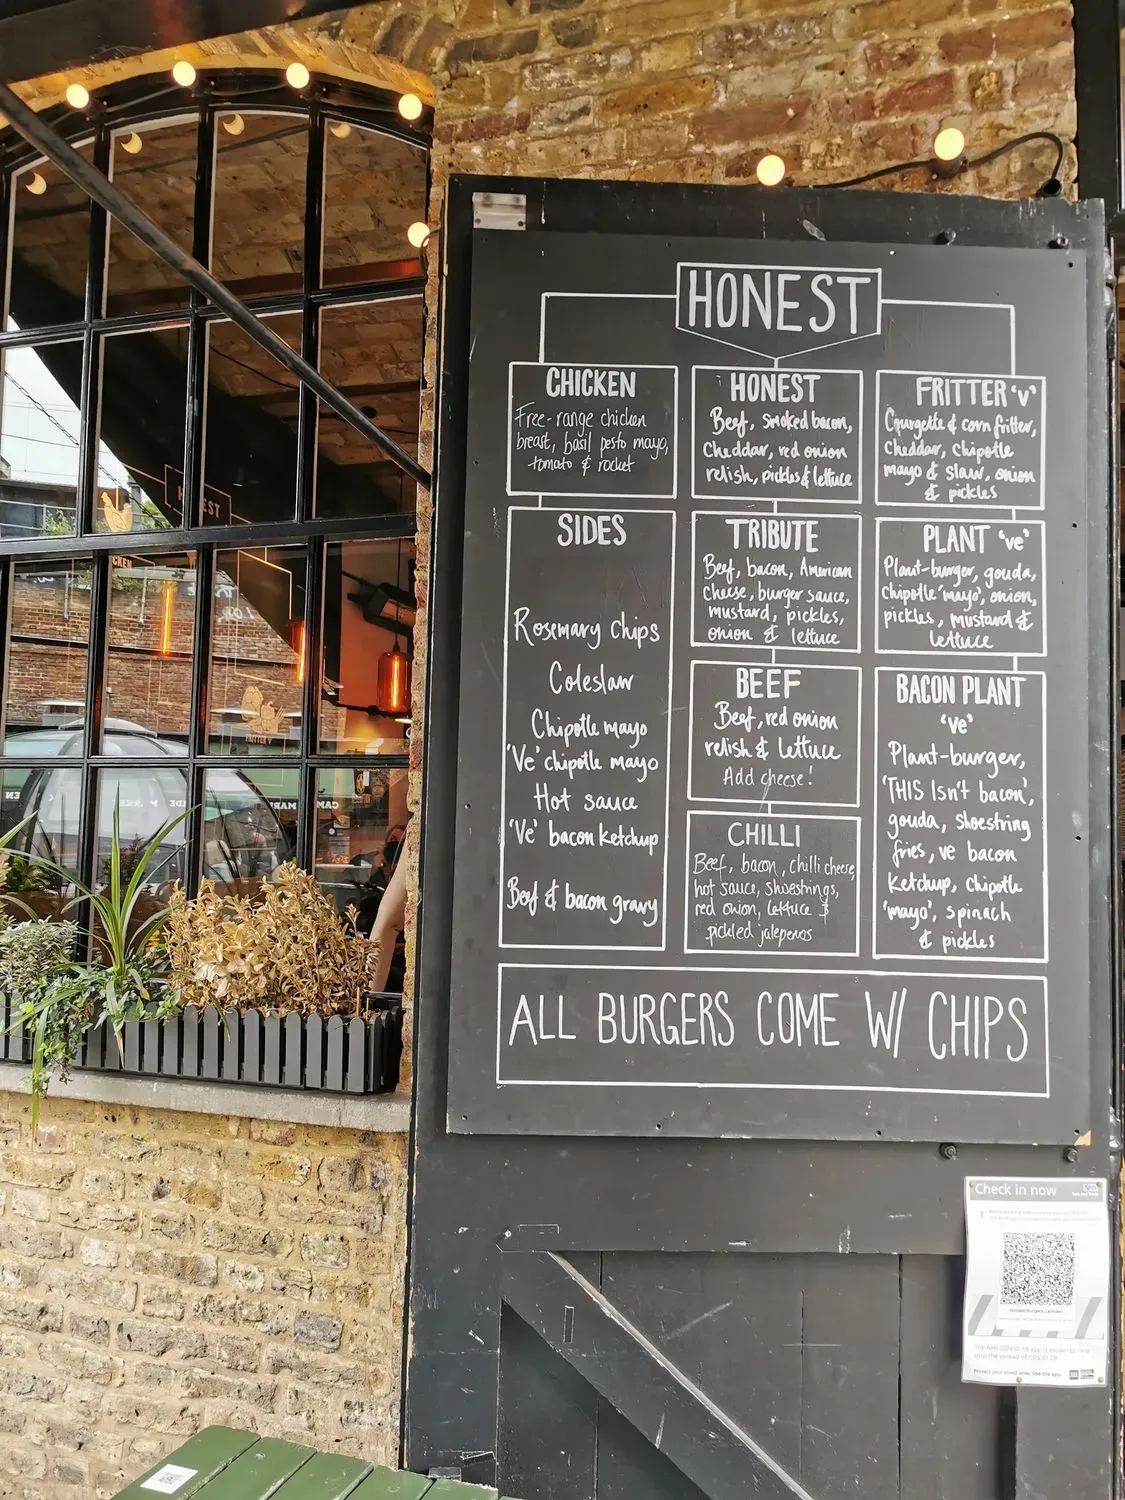 HONEST
CHICKEN
Free-range chicken
breast, basil pesto mayo,
tomato & rocket
HONEST
Beef, smoked bacon,
Cheddar, red onion
relish, pickles & lettuce
FRITTER 'v'
Courgette & corn fritter,
Cheddar, chipotle
mayo & slaw, onion
& pickles
SIDES
Rosemary Chips
Coleslaw
Chipotle mayo
'Ve' chipotle mayo
Hot sauce
'Ve' bacon ketchup
Beef & bacon gravy
TRIBUTE
Beef, bacon, American
cheese, burger sauce,
mustard, pickles,
onion & lettuce
PLANT 've'
Plant-burger, gouda,
chipotle 'mayo', onion,
pickles, mustard &
lettuce
BEEF
Beef, red onion
relish & lettuce
Add cheese!
BACON PLANT
've'
Plant-burger,
'THIS Isn't bacon',
gouda, shoestring
fries, ve bacon
ketchup, chipotle
'mayo', spinach
& pickles
CHILLI
Beef, bacon, chilli cheese,
hot sauce, shoestrings,
red onion, lettuce &
pickled jalepenos
ALL BURGERS COME W/ CHIPS
Check in now
Honest Burgers Camden
The NHS COVID-19 app
stop the spread of COVID-19
Protect your loved ones. Use the app.